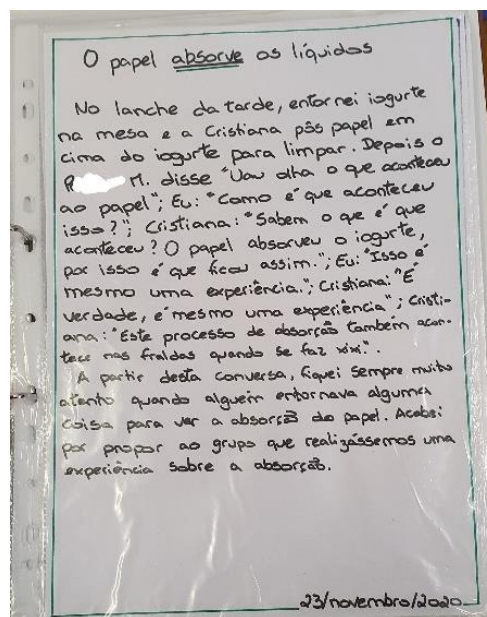 O papel absorve os líquidos
No lanche da tarde, entornei iogurte
na mesa e a Cristiana pôs papel em
cima do iogurte para limpar. Depois o
R M. disse "Uau olha o que aconteceu
ao papel"; Eu: "Como é que aconteceu
isso?"; Cristiana: "Sabem o que é que
aconteceu? O papel absorveu o iogurte,
por isso é que ficou assim."; Eu: "Isso é
mesmo uma experiência."; Cristiana: "É
verdade, é mesmo uma experiência"; Cristi-
ana: "Este processo de absorção também acon-
tece nas fraldas quando se faz xixi".
A partir desta conversa, fiquei sempre muito
atento quando alguém entornava alguma
coisa para ver a absorção do papel. Acabei
por propor ao grupo que realizássemos uma
experiência sobre a absorção.
23/novembro/2020